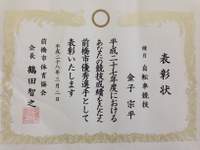 表彰状
種目 自転車競技
金子 宗平
平成二十七年度における
あなたの競技成績をたたえ
前橋市優秀選手として
表彰いたします
平成二十八年三月二日
前橋市体育協会
会長 鶴田智之